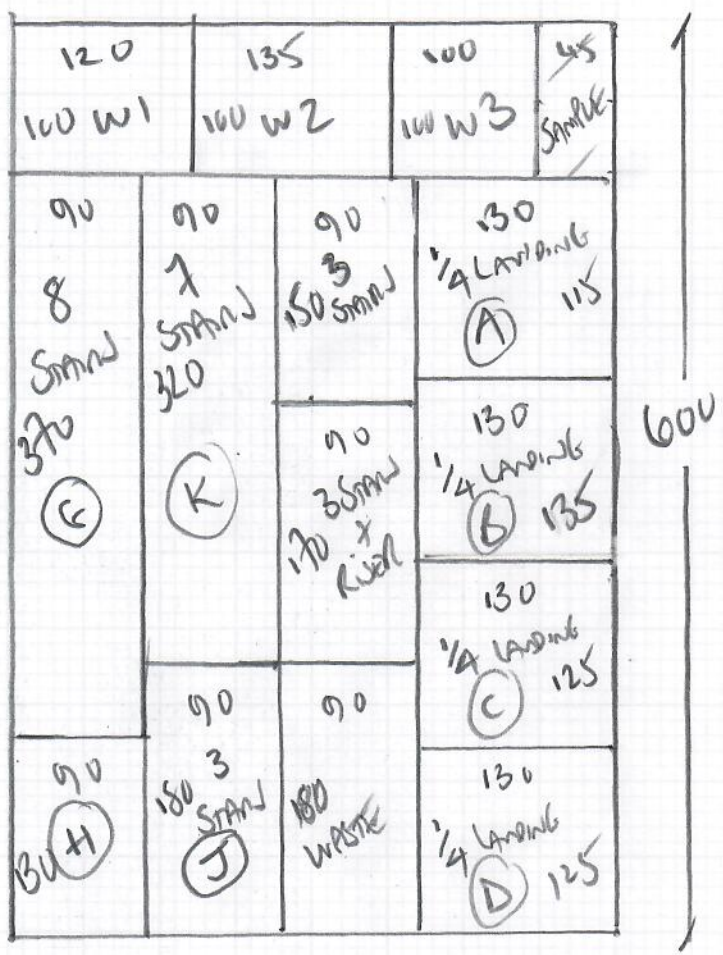 120
100 W1
135
100 W2
100
100 W3
45
SAMPLE
90
8
STAIRS
370
G
90
7
STAIRS
320
K
90
3
150 STAIRS
130
1/4 LANDING
A 115
90
3 STAIRS
170 +
RISER
130
1/4 LANDING
B 135
130
1/4 LANDING
C 125
90
130 H
90
180 3
STAIRS
J
90
180
WASTE
130
1/4 LANDING
D 125
600